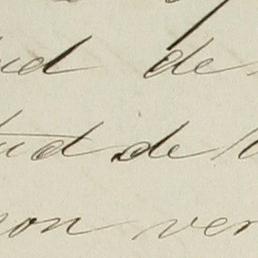 ud de
tud de l
non ver